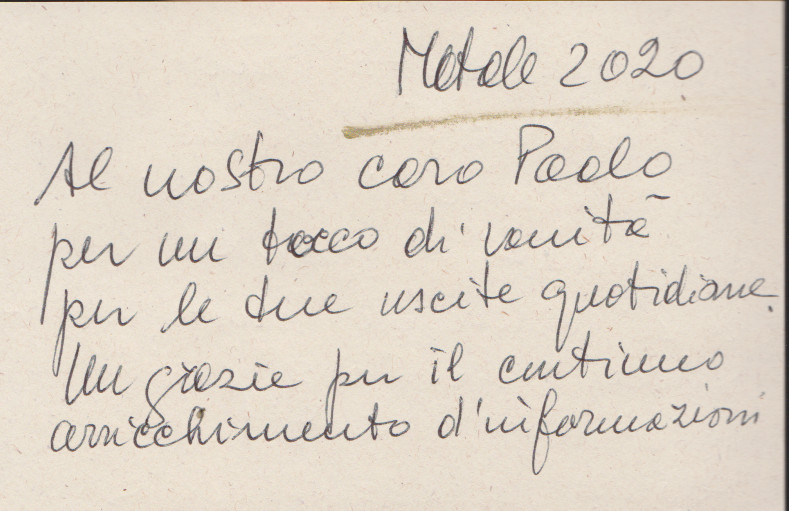 Natale 2020
Al nostro caro Paolo
per un tocco di vanità
per le tue uscite quotidiane.
Un grazie per il continuo
arricchimento d'informazioni